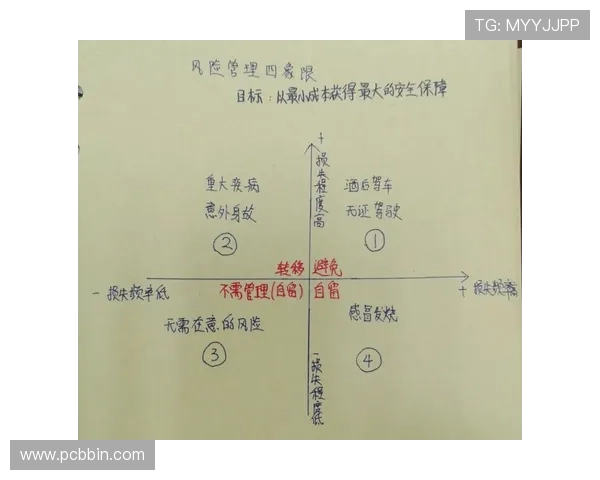 TG: MYYJJPP
风险管理四象限
目标：以最小成本获得最大的安全保障
+
损失程度高
重大疾病
意外身故
②
酒后驾车
无证驾驶
①
转移 避免
- 损失频率低
+ 损失频率高
不需管理(自留) 自留
无需在意的风险
③
感冒发烧
④
- 损失程度低
www.pcbbin.com